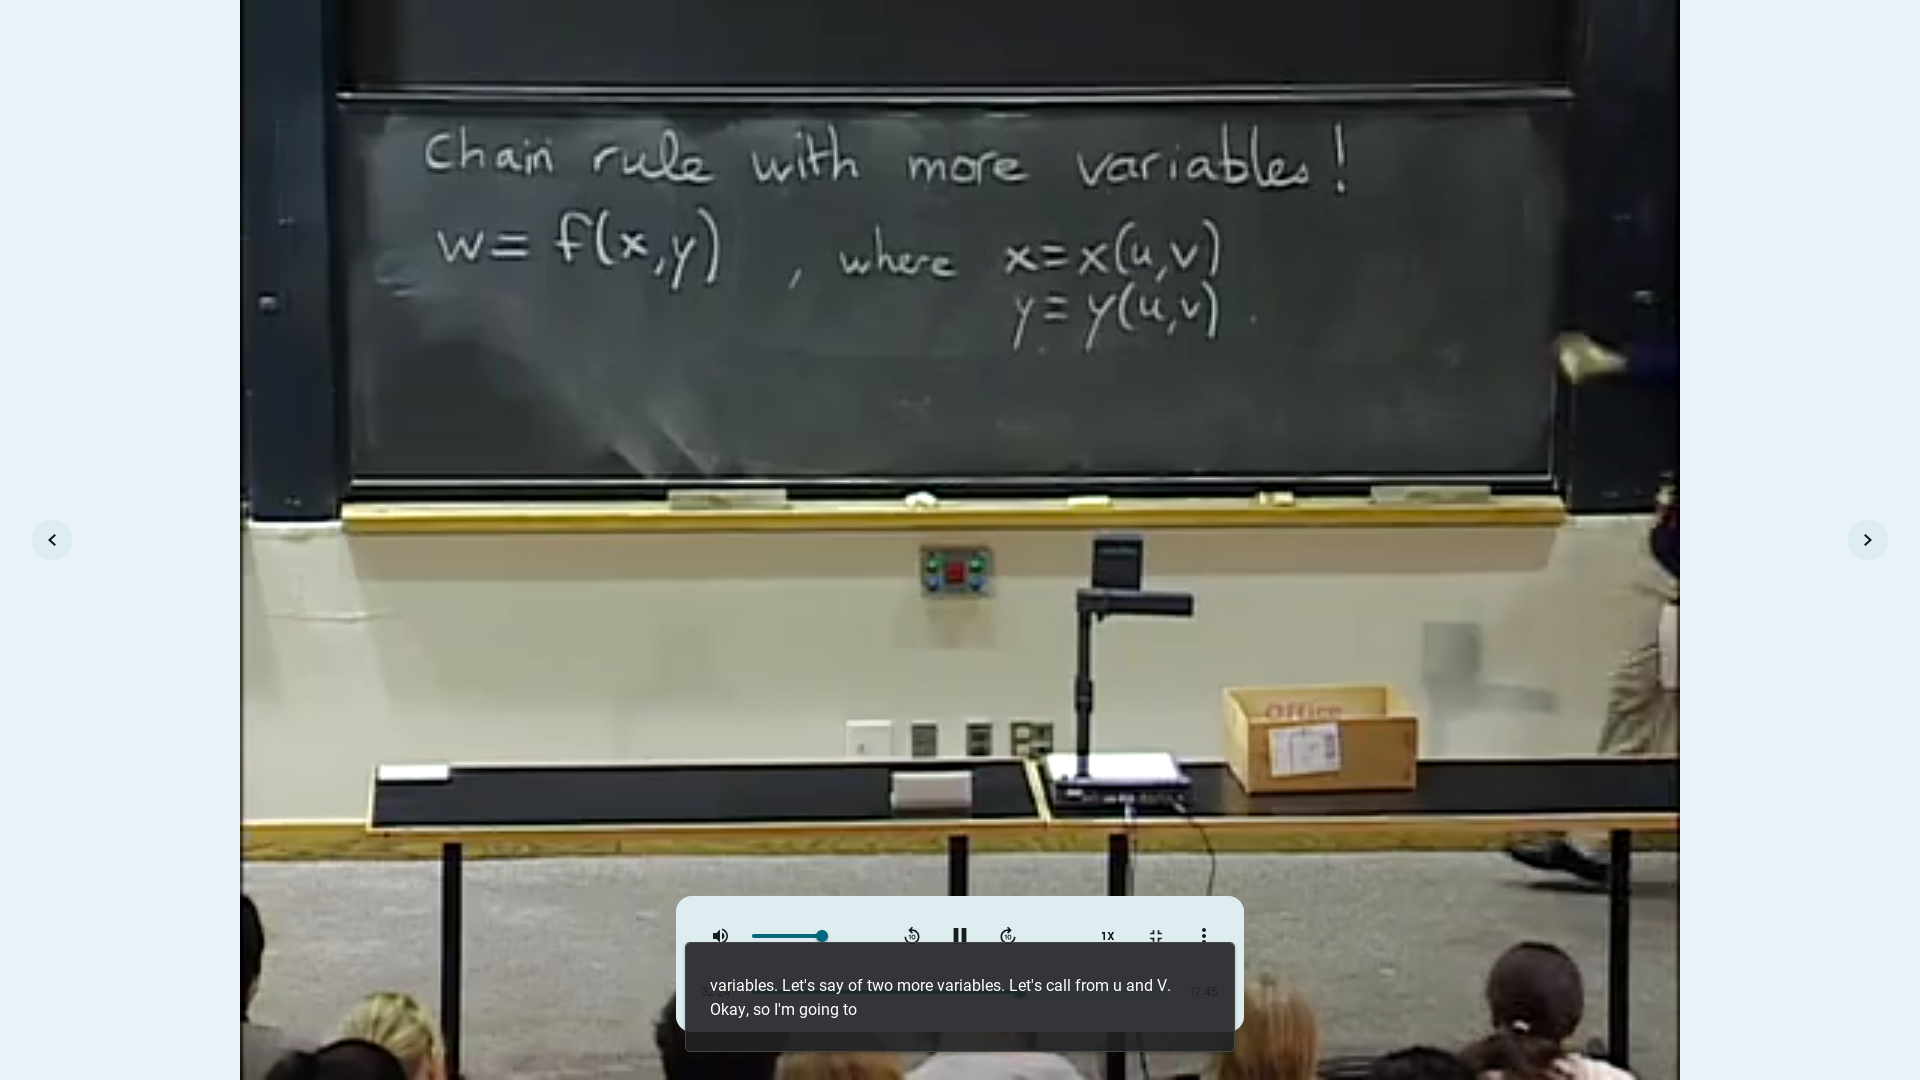 Chain rule with more variables!
w = f(x,y) , where x = x(u,v)
y = y(u,v) .
Office
1X
variables. Let's say of two more variables. Let's call from u and V.
Okay, so I'm going to
17:45